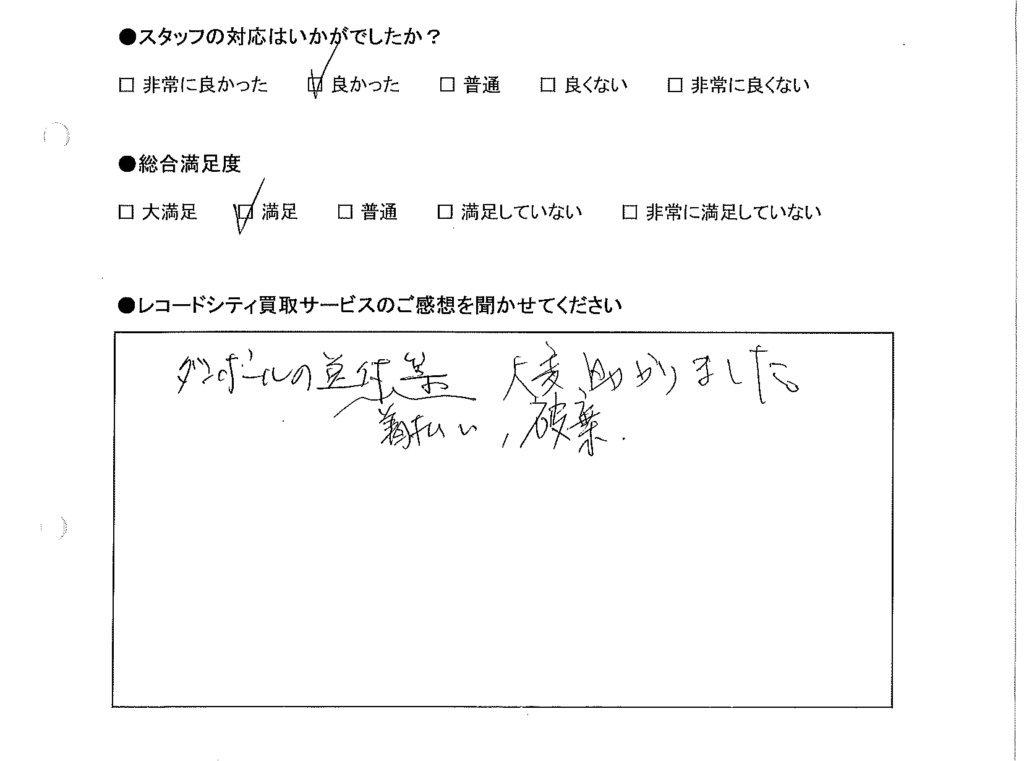 ●スタッフの対応はいかがでしたか？
□ 非常に良かった ☑ 良かった □ 普通 □ 良くない □ 非常に良くない
●総合満足度
□ 大満足 ☑ 満足 □ 普通 □ 満足していない □ 非常に満足していない
●レコードシティ買取サービスのご感想を聞かせてください
ダンボールの 大変助かりました。
着払い、破棄.